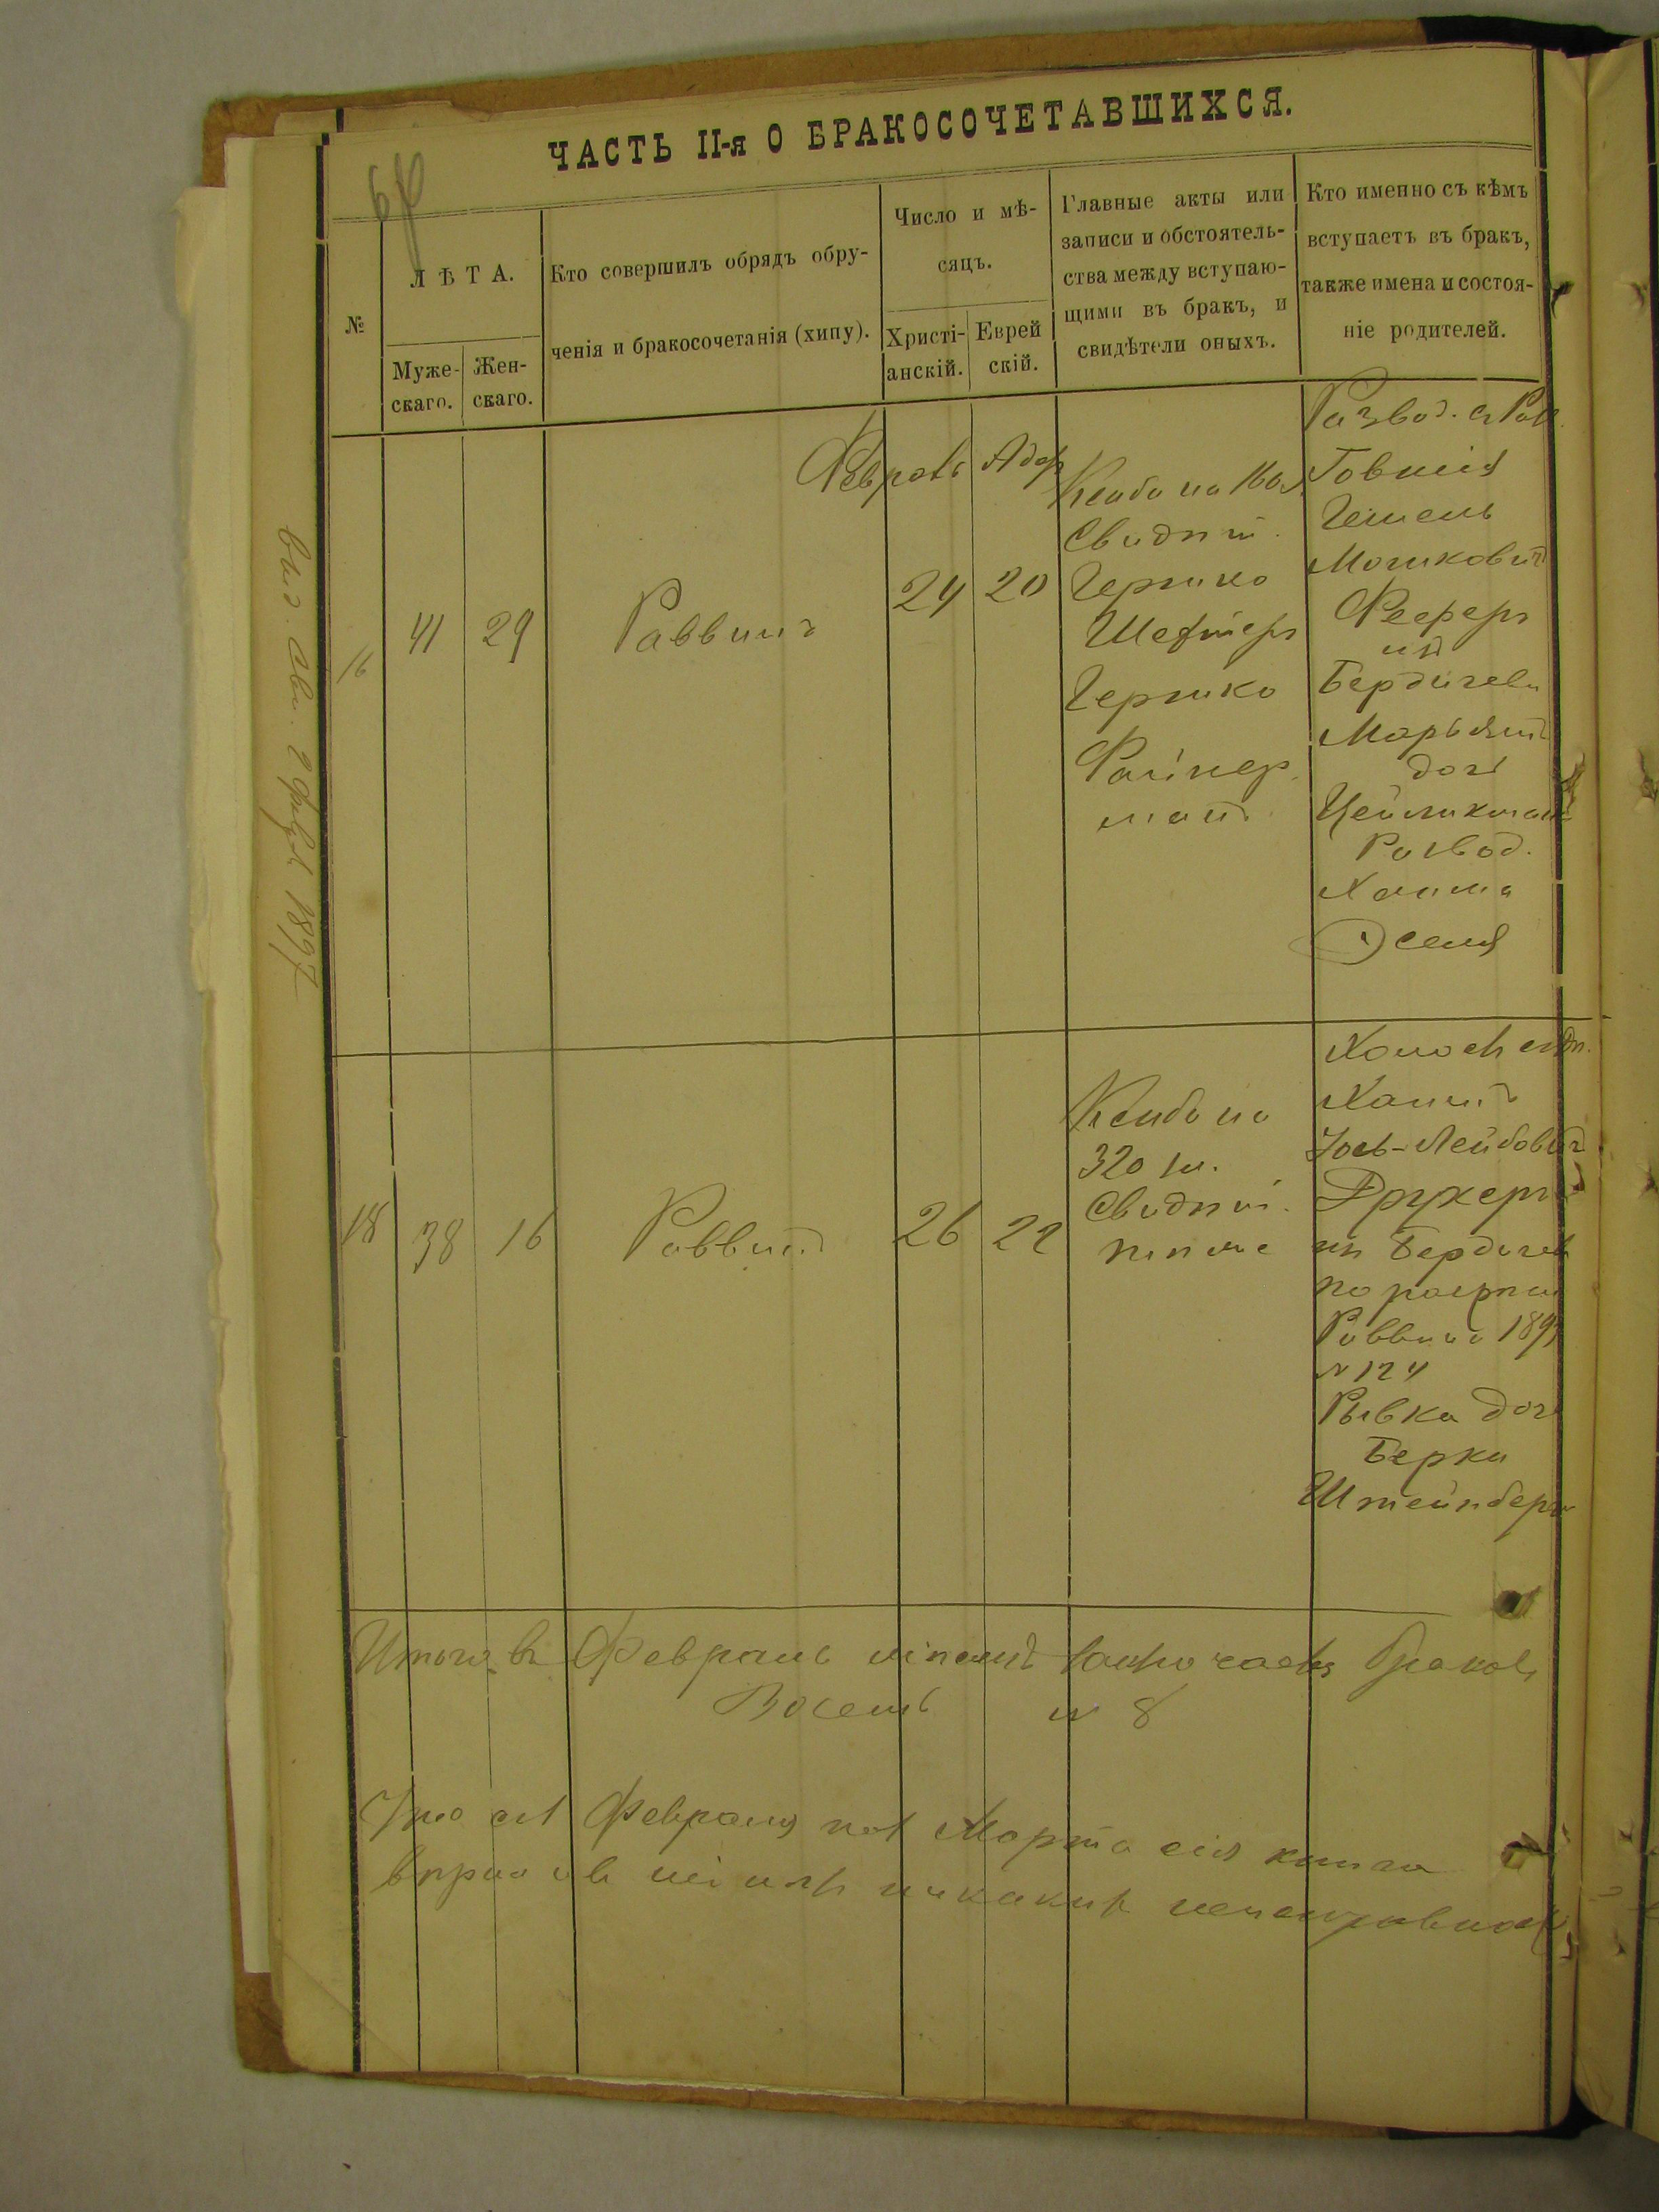 ЧАСТЬ II-я О БРАКОСОЧЕТАВШИХСЯ.
№
ЛѢТА.
Муже-
скаго.
Жен-
скаго.
Кто совершилъ обрядъ обру-
ченія и бракосочетанія (хипу).
Число и мѣ-
сяцъ.
Христі-
анскій.
Еврей
скій.
Главные акты или
записи и обстоятель-
ства между вступаю-
щими въ бракъ, и
свидѣтели оныхъ.
Кто именно съ кѣмъ
вступаетъ въ бракъ,
также имена и состоя-
ніе родителей.
Февраль Адар
16
41
29
Раввинъ
24
20
Свидѣт.
Гершко
Шефтеръ
Гершко
Файнер
манъ
Развод.
Товшія
Гешель
Мошковичъ
изъ
Бердичева
Марьямъ
доч
Цейликмана
Развод.
Хаима
18
38
16
Раввинъ
26
22
на
320 зл.
Свидѣт.
тѣ же
Холостъ
Хаимъ
Іось-Лейбовичъ
Друкеръ
изъ Бердичев
Раввина
№ 124
Рывка доч
Берки
Штейнберг
Итого въ Февралѣ мѣсяцѣ браковъ
Восемь № 8
Что съ 1 Февраля по 1 Марта сія книга
выд. 1897